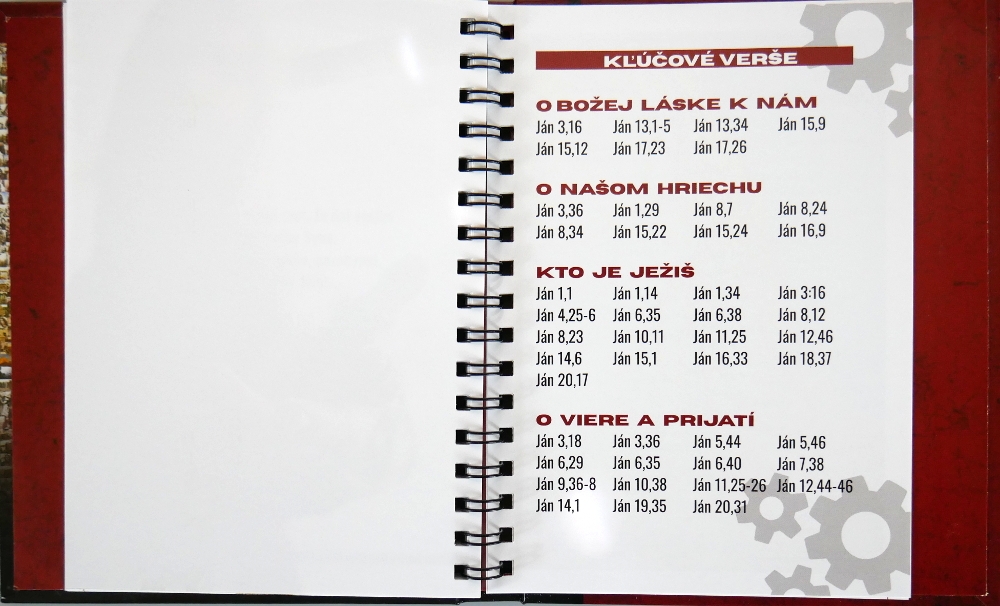 KĽÚČOVÉ VERŠE
O BOŽEJ LÁSKE K NÁM
Ján 3,16 Ján 13,1-5 Ján 13,34 Ján 15,9
Ján 15,12 Ján 17,23 Ján 17,26
O NAŠOM HRIECHU
Ján 3,36 Ján 1,29 Ján 8,7 Ján 8,24
Ján 8,34 Ján 15,22 Ján 15,24 Ján 16,9
KTO JE JEŽIŠ
Ján 1,1 Ján 1,14 Ján 1,34 Ján 3:16
Ján 4,25-6 Ján 6,35 Ján 6,38 Ján 8,12
Ján 8,23 Ján 10,11 Ján 11,25 Ján 12,46
Ján 14,6 Ján 15,1 Ján 16,33 Ján 18,37
Ján 20,17
O VIERE A PRIJATÍ
Ján 3,18 Ján 3,36 Ján 5,44 Ján 5,46
Ján 6,29 Ján 6,35 Ján 6,40 Ján 7,38
Ján 9,36-8 Ján 10,38 Ján 11,25-26 Ján 12,44-46
Ján 14,1 Ján 19,35 Ján 20,31